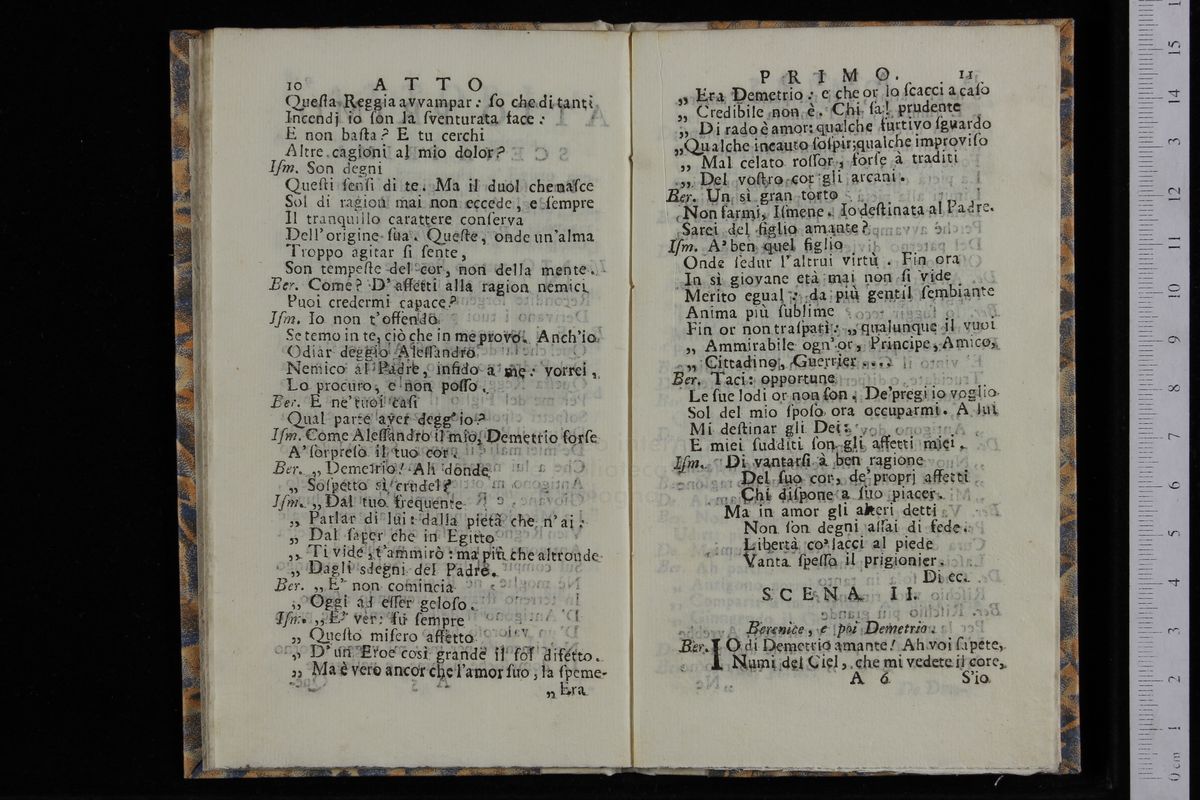 10 ATTO
Queſta Reggia avvampar: ſo che di tanti
Incendj io ſon la ſventurata face:
E non baſta? E tu cerchi
Altre cagioni al mio dolor?
Iſm. Son degni
Queſti ſenſi di te. Ma il duol che naſce
Sol di ragion mai non eccede, e ſempre
Il tranquillo carattere conſerva
Dell'origine ſua. Queſte, onde un'alma
Troppo agitar ſi ſente,
Son tempeſte del cor, non della mente.
Ber. Come? D'affetti alla ragion nemici
Puoi credermi capace?
Iſm. Io non t'offendo
Se temo in te, ciò che in me provo. Anch'io
Odiar deggio Aleſſandro
Nemico al Padre, infido a me: vorrei,
Lo procuro, e non poſſo.
Ber. E ne' tuoi caſi
Qual parte aver degg'io?
Iſm. Come Aleſſandro il mio, Demetrio forſe
A' ſorpreſo il tuo cor.
Ber. „ Demetrio! Ah donde
„ Soſpetto sì crudel?
Iſm. „ Dal tuo frequente
„ Parlar di lui: dalla pietà che n'ai:
„ Dal ſaper che in Egitto
„ Ti vide, t'ammirò: ma più che altronde
„ Dagli sdegni del Padre.
Ber. „ E' non comincia
„ Oggi ad eſſer geloſo.
Iſm. „ E' ver: fu ſempre
„ Queſto miſero affetto
„ D'un Eroe così grande il ſol difetto.
„ Ma è vero ancor che l'amor ſuo, la ſpeme
„ Era
PRIMO. 11
„ Era Demetrio: e che or lo ſcacci a caſo
„ Credibile non è. Chi ſa! prudente
„ Di rado è amor: qualche furtivo ſguardo
„ Qualche incauto ſoſpir; qualche improviſo
„ Mal celato roſſor, forſe à traditi
„ Del voſtro cor gli arcani.
Ber. Un sì gran torto
Non farmi, Iſmene. Io deſtinata al Padre
Sarei del figlio amante?
Iſm. A' ben quel figlio
Onde ſedur l'altrui virtù. Fin ora
In sì giovane età mai non ſi vide
Merito egual: da più gentil ſembiante
Anima più ſublime
Fin or non traſpati: „ qualunque il vuoi
„ Ammirabile ogn'or, Principe, Amico,
„ Cittadino, Guerrier ....
Ber. Taci: opportune
Le ſue lodi or non ſon. De' pregi io voglio
Sol del mio ſpoſo ora occuparmi. A lui
Mi deſtinar gli Dei:
E miei ſudditi ſon gli affetti miei.
Iſm. Di vantarſi à ben ragione
Del ſuo cor, de' proprj affetti
Chi diſpone a ſuo piacer.
Ma in amor gli alteri detti
Non ſon degni aſſai di fede.
Libertà co' lacci al piede
Vanta ſpeſſo il prigionier.
Di ec.
SCENA II.
Berenice, e poi Demetrio.
Ber. IO di Demetrio amante! Ah voi ſapete,
Numi del Ciel, che mi vedete il core,
A 6 S'io